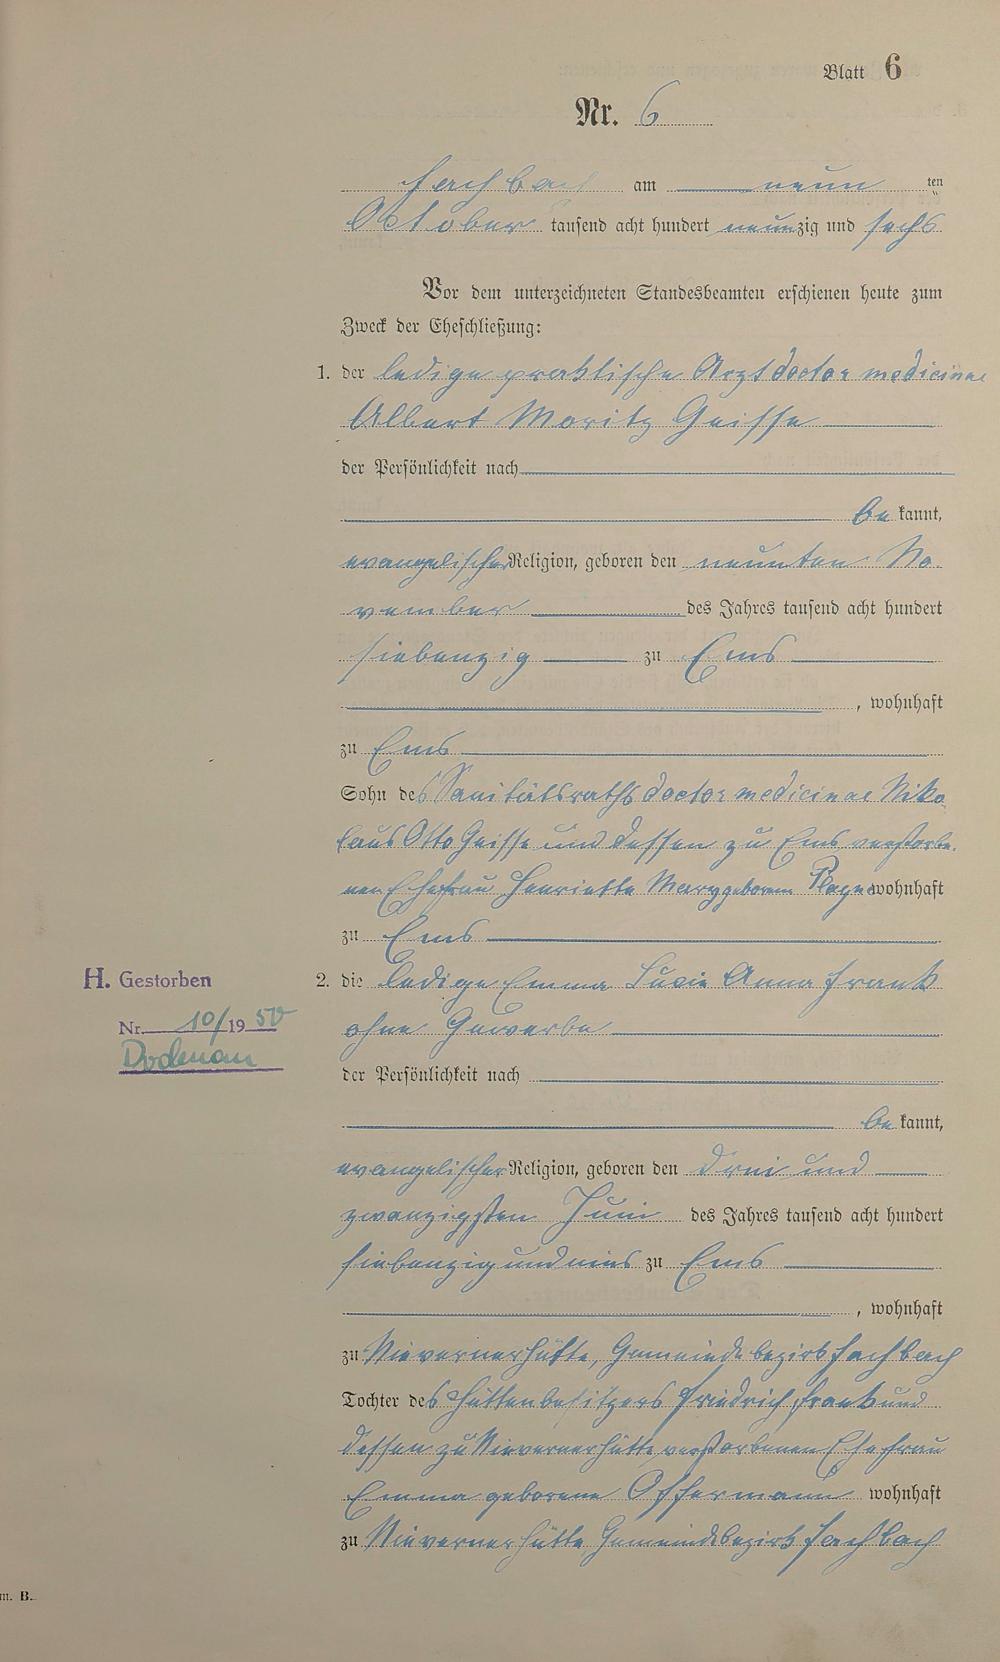 Blatt 6
Nr. 6
Fachbach am neun ten
October tausend acht hundert neunzig und sechs
Vor dem unterzeichneten Standesbeamten erschienen heute zum
Zweck der Eheschließung:
1. der ledige praktische Arzt doctor medicinae
Albert Moritz Geisse
der Persönlichkeit nach
be kannt,
evangelischer Religion, geboren den neunten No-
vember des Jahres tausend acht hundert
siebenzig zu Ems
, wohnhaft
zu Ems
Sohn des Sanitätsraths doctor medicinae Niko-
laus Otto Geisse und dessen zu Ems verstorbe-
nen Ehefrau Henriette Mary geborenen wohnhaft
zu Ems
H. Gestorben
Nr. 10/1950
Dodenau
2. die ledige Emma Lucie Anna Frank
ohne Gewerbe
der Persönlichkeit nach
be kannt,
evangelischer Religion, geboren den drei und
zwanzigsten Juni des Jahres tausend acht hundert
siebenzig und eins zu Ems
, wohnhaft
zu Nievernerhütte, Gemeindebezirk Fachbach
Tochter des Hüttenbesitzers Friedrich Frank und
dessen zu Nievernerhütte verstorbenen Ehefrau
Emma geborene Offermann wohnhaft
zu Nievernerhütte Gemeindebezirk Fachbach
m. B.